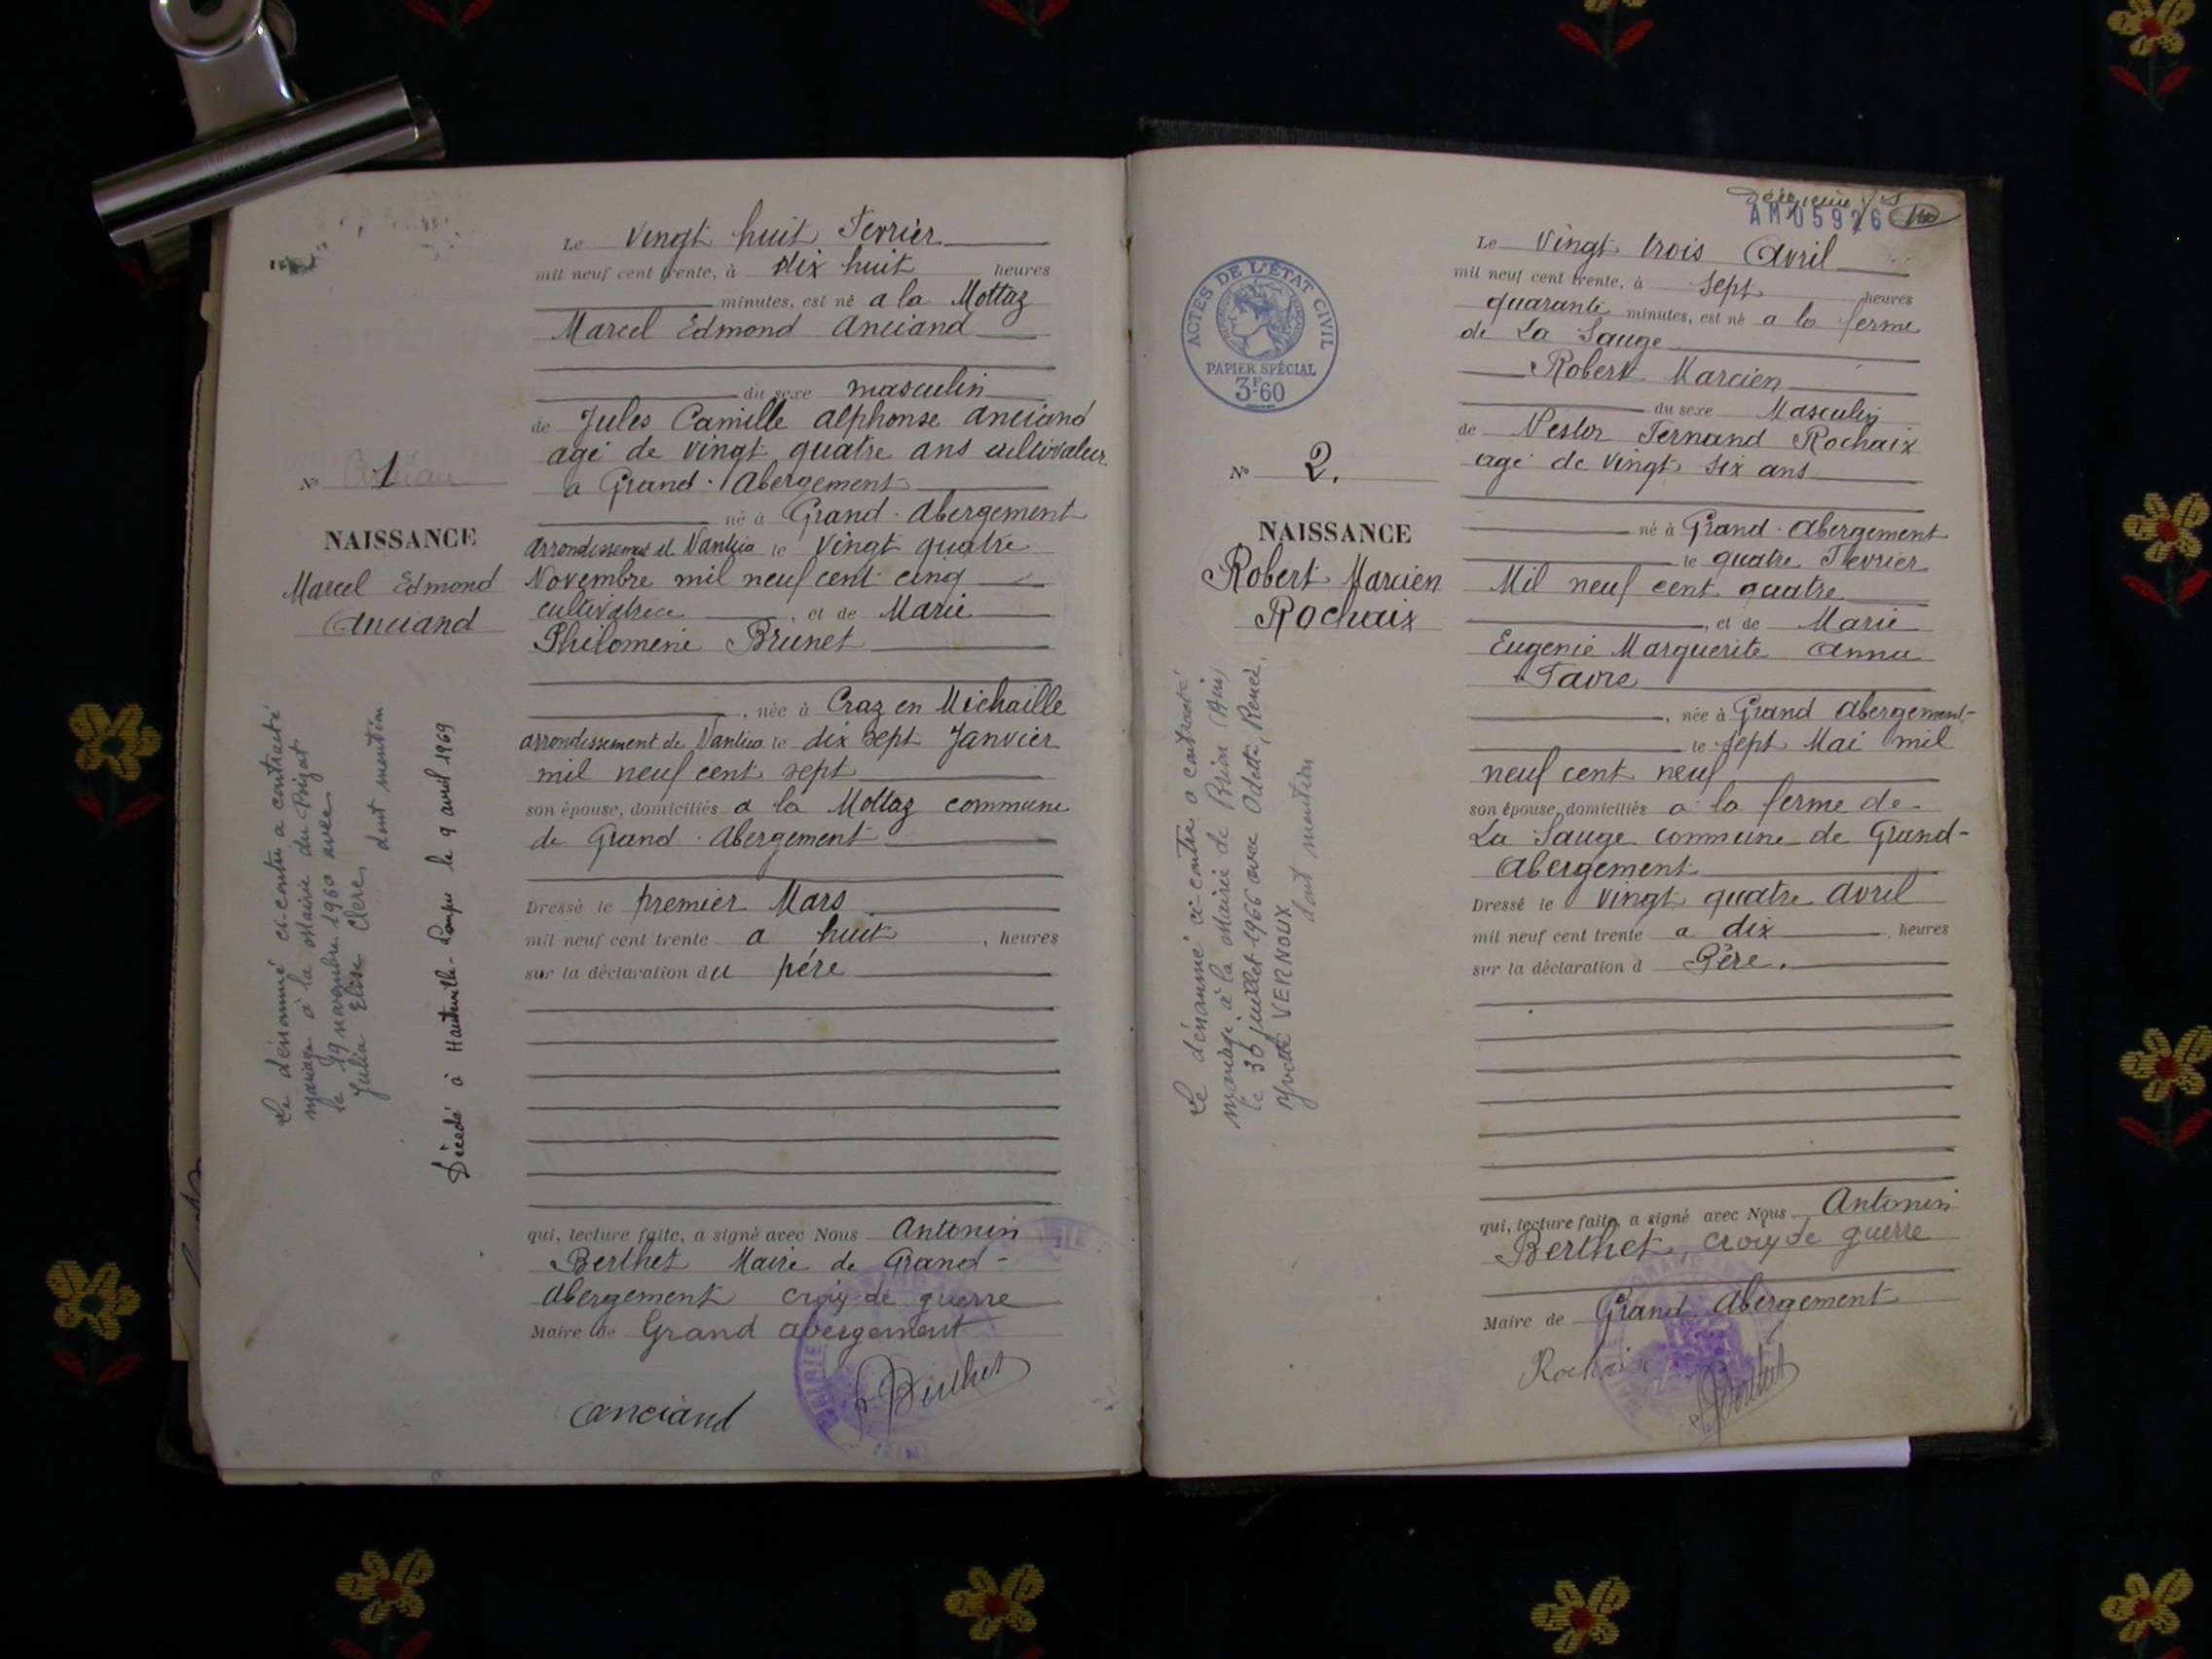 Le vingt huit Fevrier
mil neuf cent trente, à dix huit heures
minutes, est né a la Mottaz
Marcel Edmond Anciand
du sexe masculin
de Jules Camille Alphonse Anciand
agé de vingt quatre ans cultivateur
a Grand-Abergement
né à Grand-Abergement
arrondissement de Nantua le vingt quatre
Novembre mil neuf cent cinq
cultivatrice, et de Marie
Philomène Brunet
, née à Craz en Michaille
arrondissement de Nantua le dix sept Janvier
mil neuf cent sept
son épouse, domiciliés a la Mottaz commune
de Grand-Abergement
Dressé le premier Mars
mil neuf cent trente a huit, heures
sur la déclaration du père
qui, lecture faite, a signé avec Nous Antonin
Berthet Maire de Grand-
Abergement croix de guerre
Maire de Grand abergement
Anciand
Berthet
N° 1
NAISSANCE
Marcel Edmond
Anciand
Le dénommé ci-contre a contracté
mariage à la Mairie du Poizat
le 19 novembre 1960 avec
Julia Elise Clerc
dont mention
Décédé à Hauteville-Lompnes le 9 avril 1969
AM 05926
ACTES DE L'ÉTAT CIVIL
PAPIER SPÉCIAL
3F60
N° 2.
NAISSANCE
Robert Marcien
Rochaix
Le dénommé ci-contre a contracté
mariage à la Mairie de Brion (Ain)
le 30 juillet 1966 avec Odette, Renée,
Yvette VERNOUX
dont mention
Le Vingt trois Avril
mil neuf cent trente, à Sept heures
quarante minutes, est né a la ferme
de La Sauge
Robert Marcien
du sexe Masculin
de Nestor Fernand Rochaix
agé de vingt six ans
né à Grand-Abergement
le quatre Fevrier
Mil neuf cent quatre
, et de Marie
Eugenie Marguerite Anna
Favre
, née à Grand Abergement-
le sept Mai mil
neuf cent neuf
son épouse, domiciliés a la ferme de
La Sauge commune de Grand-
Abergement
Dressé le vingt quatre Avril
mil neuf cent trente a dix, heures
sur la déclaration d Père.
qui, lecture faite, a signé avec Nous Antonin
Berthet, croix de guerre
Maire de Grand Abergement
Rochaix
Berthet